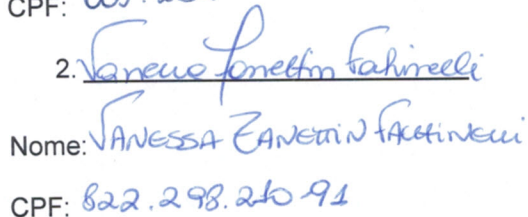 CPF:
2. Vanessa Zanettin Fachinelli
Nome: VANESSA ZANETTIN FACHINELLI
CPF: 822.298.210-91